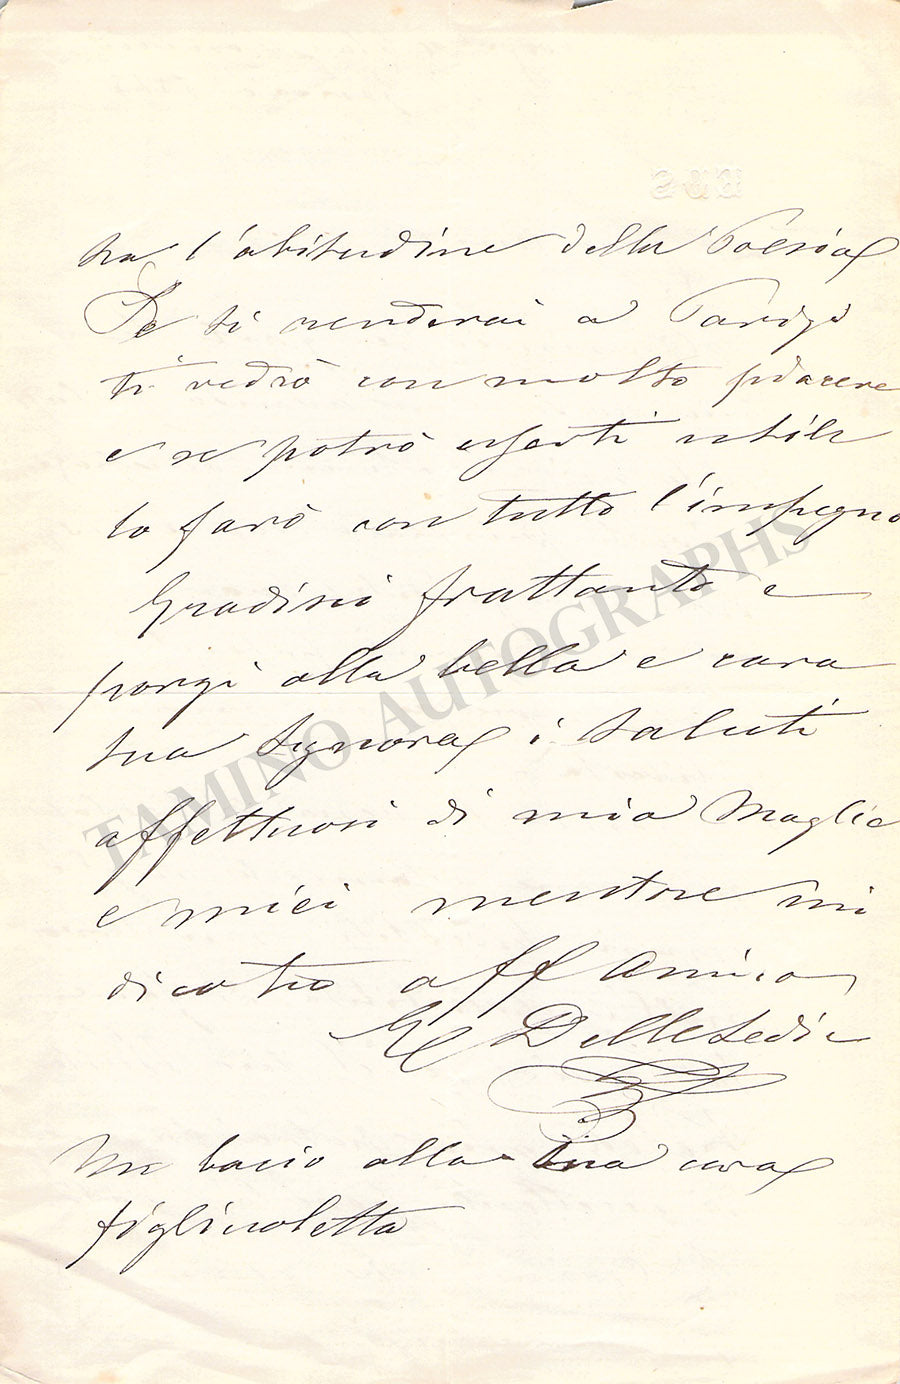 ha l'abitudine della Poesia
Se ti renderai a Parigi
ti vedrò con molto piacere
e se potrò esserti utile
lo farò con tutto l'impegno
Gradisci frattanto e
porgi alla bella e cara
tua Signora i saluti
affettuosi di mia Moglie
e miei mentre mi
dico tuo aff Amico
E DelleSedie
Un bacio alla tua cara
figliuoletta
TAMINO AUTOGRAPHS